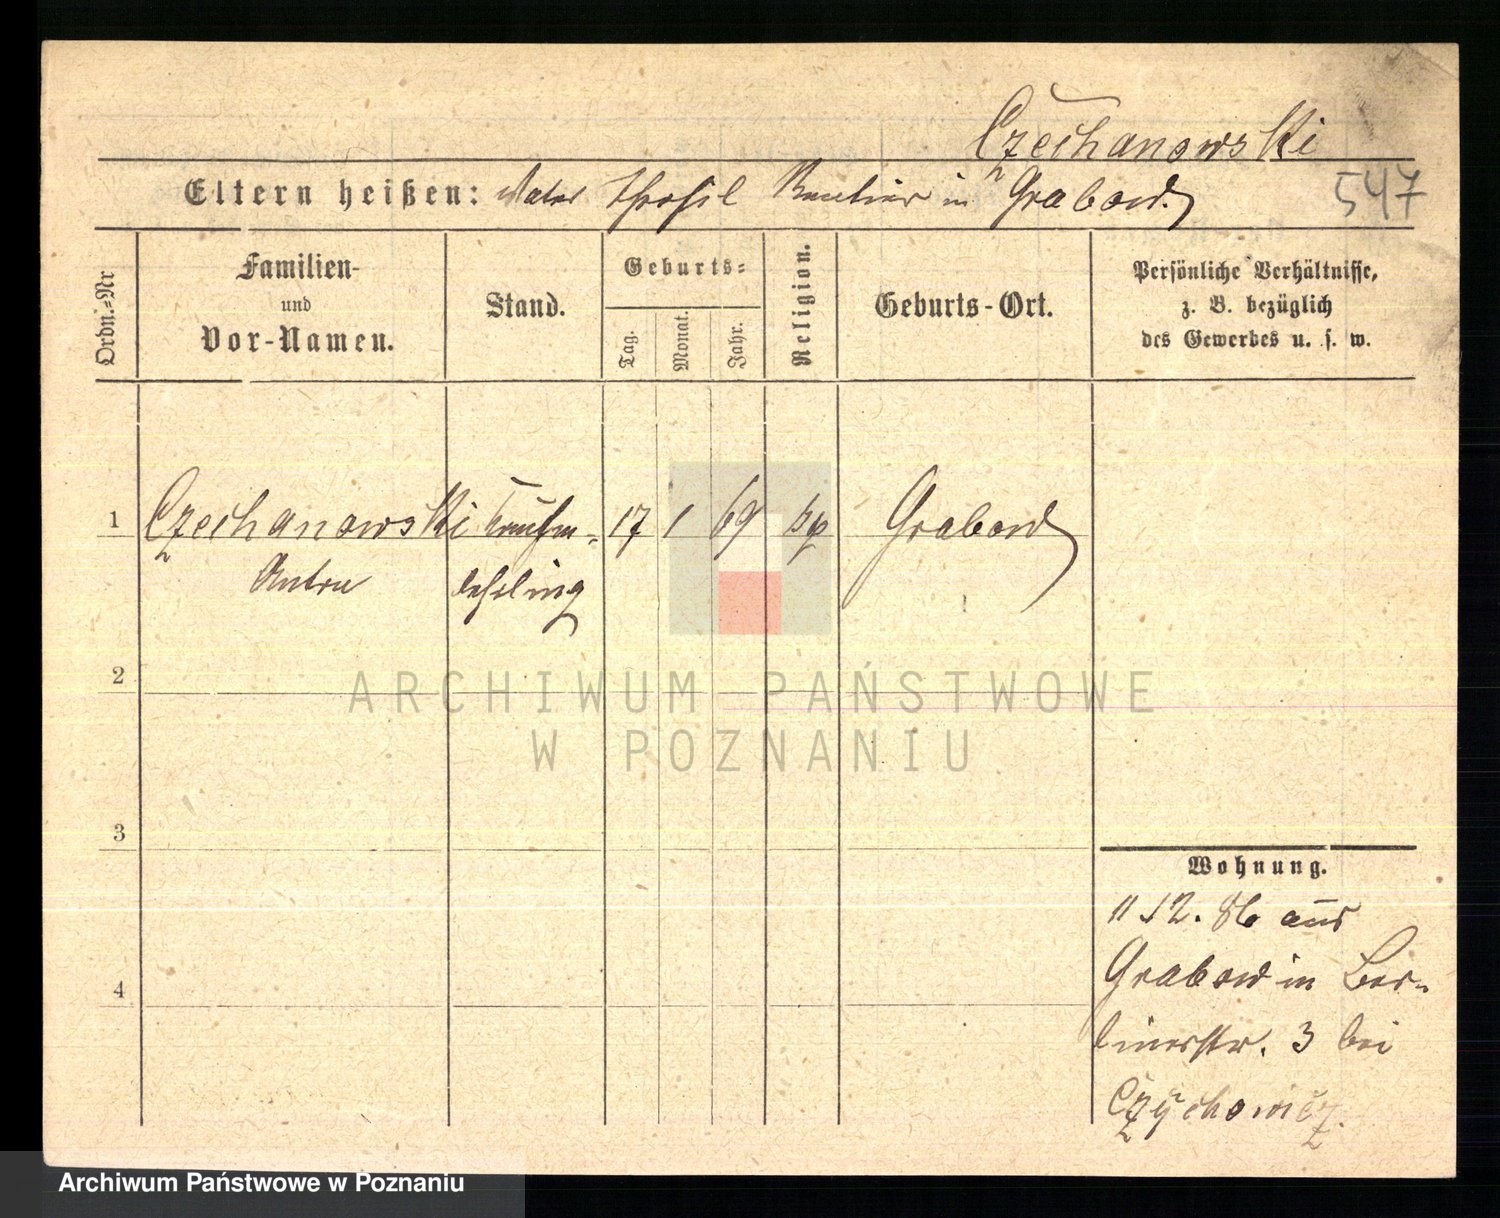 Czechanowski
Eltern heißen: Vater Theofil Rentier in Grabow.
547
Ordn.-Nr
Familien-
und
Vor-Namen.
Stand.
Geburts-
Tag.
Monat.
Jahr.
Religion.
Geburts-Ort.
Persönliche Verhältnisse,
z. B. bezüglich
des Gewerbes u. s. w.
1 Czechanowski Kaufm- 17 1 69 Grabow
lehrling
2
3
4
Wohnung.
12. 86 aus
Grabow in Ber-
linerstr. 3 bei
Czychowicz.
ARCHIWUM PAŃSTWOWE
W POZNANIU
Archiwum Państwowe w Poznaniu